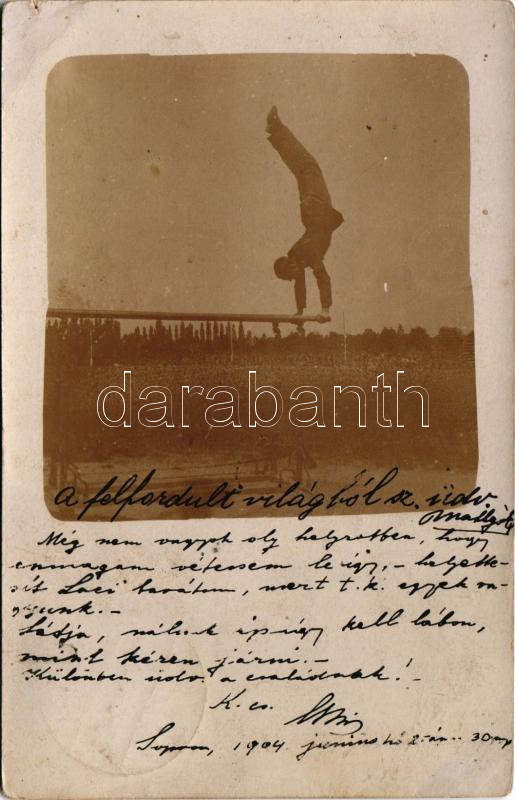 darabanth
A felfordult világból sz. üdv.
Még nem vagyok oly helyzetben, hogy
enmagam vétessem le így, - helyette-
sít Laci barátom, mert t. k. egyek va-
gyunk. -
Látja, nálunk épúgy kell lábon,
mint kézen járni. -
Különben üdv. a családnak!
K. cs.
Sopron, 1904. junius hó 2.-án..